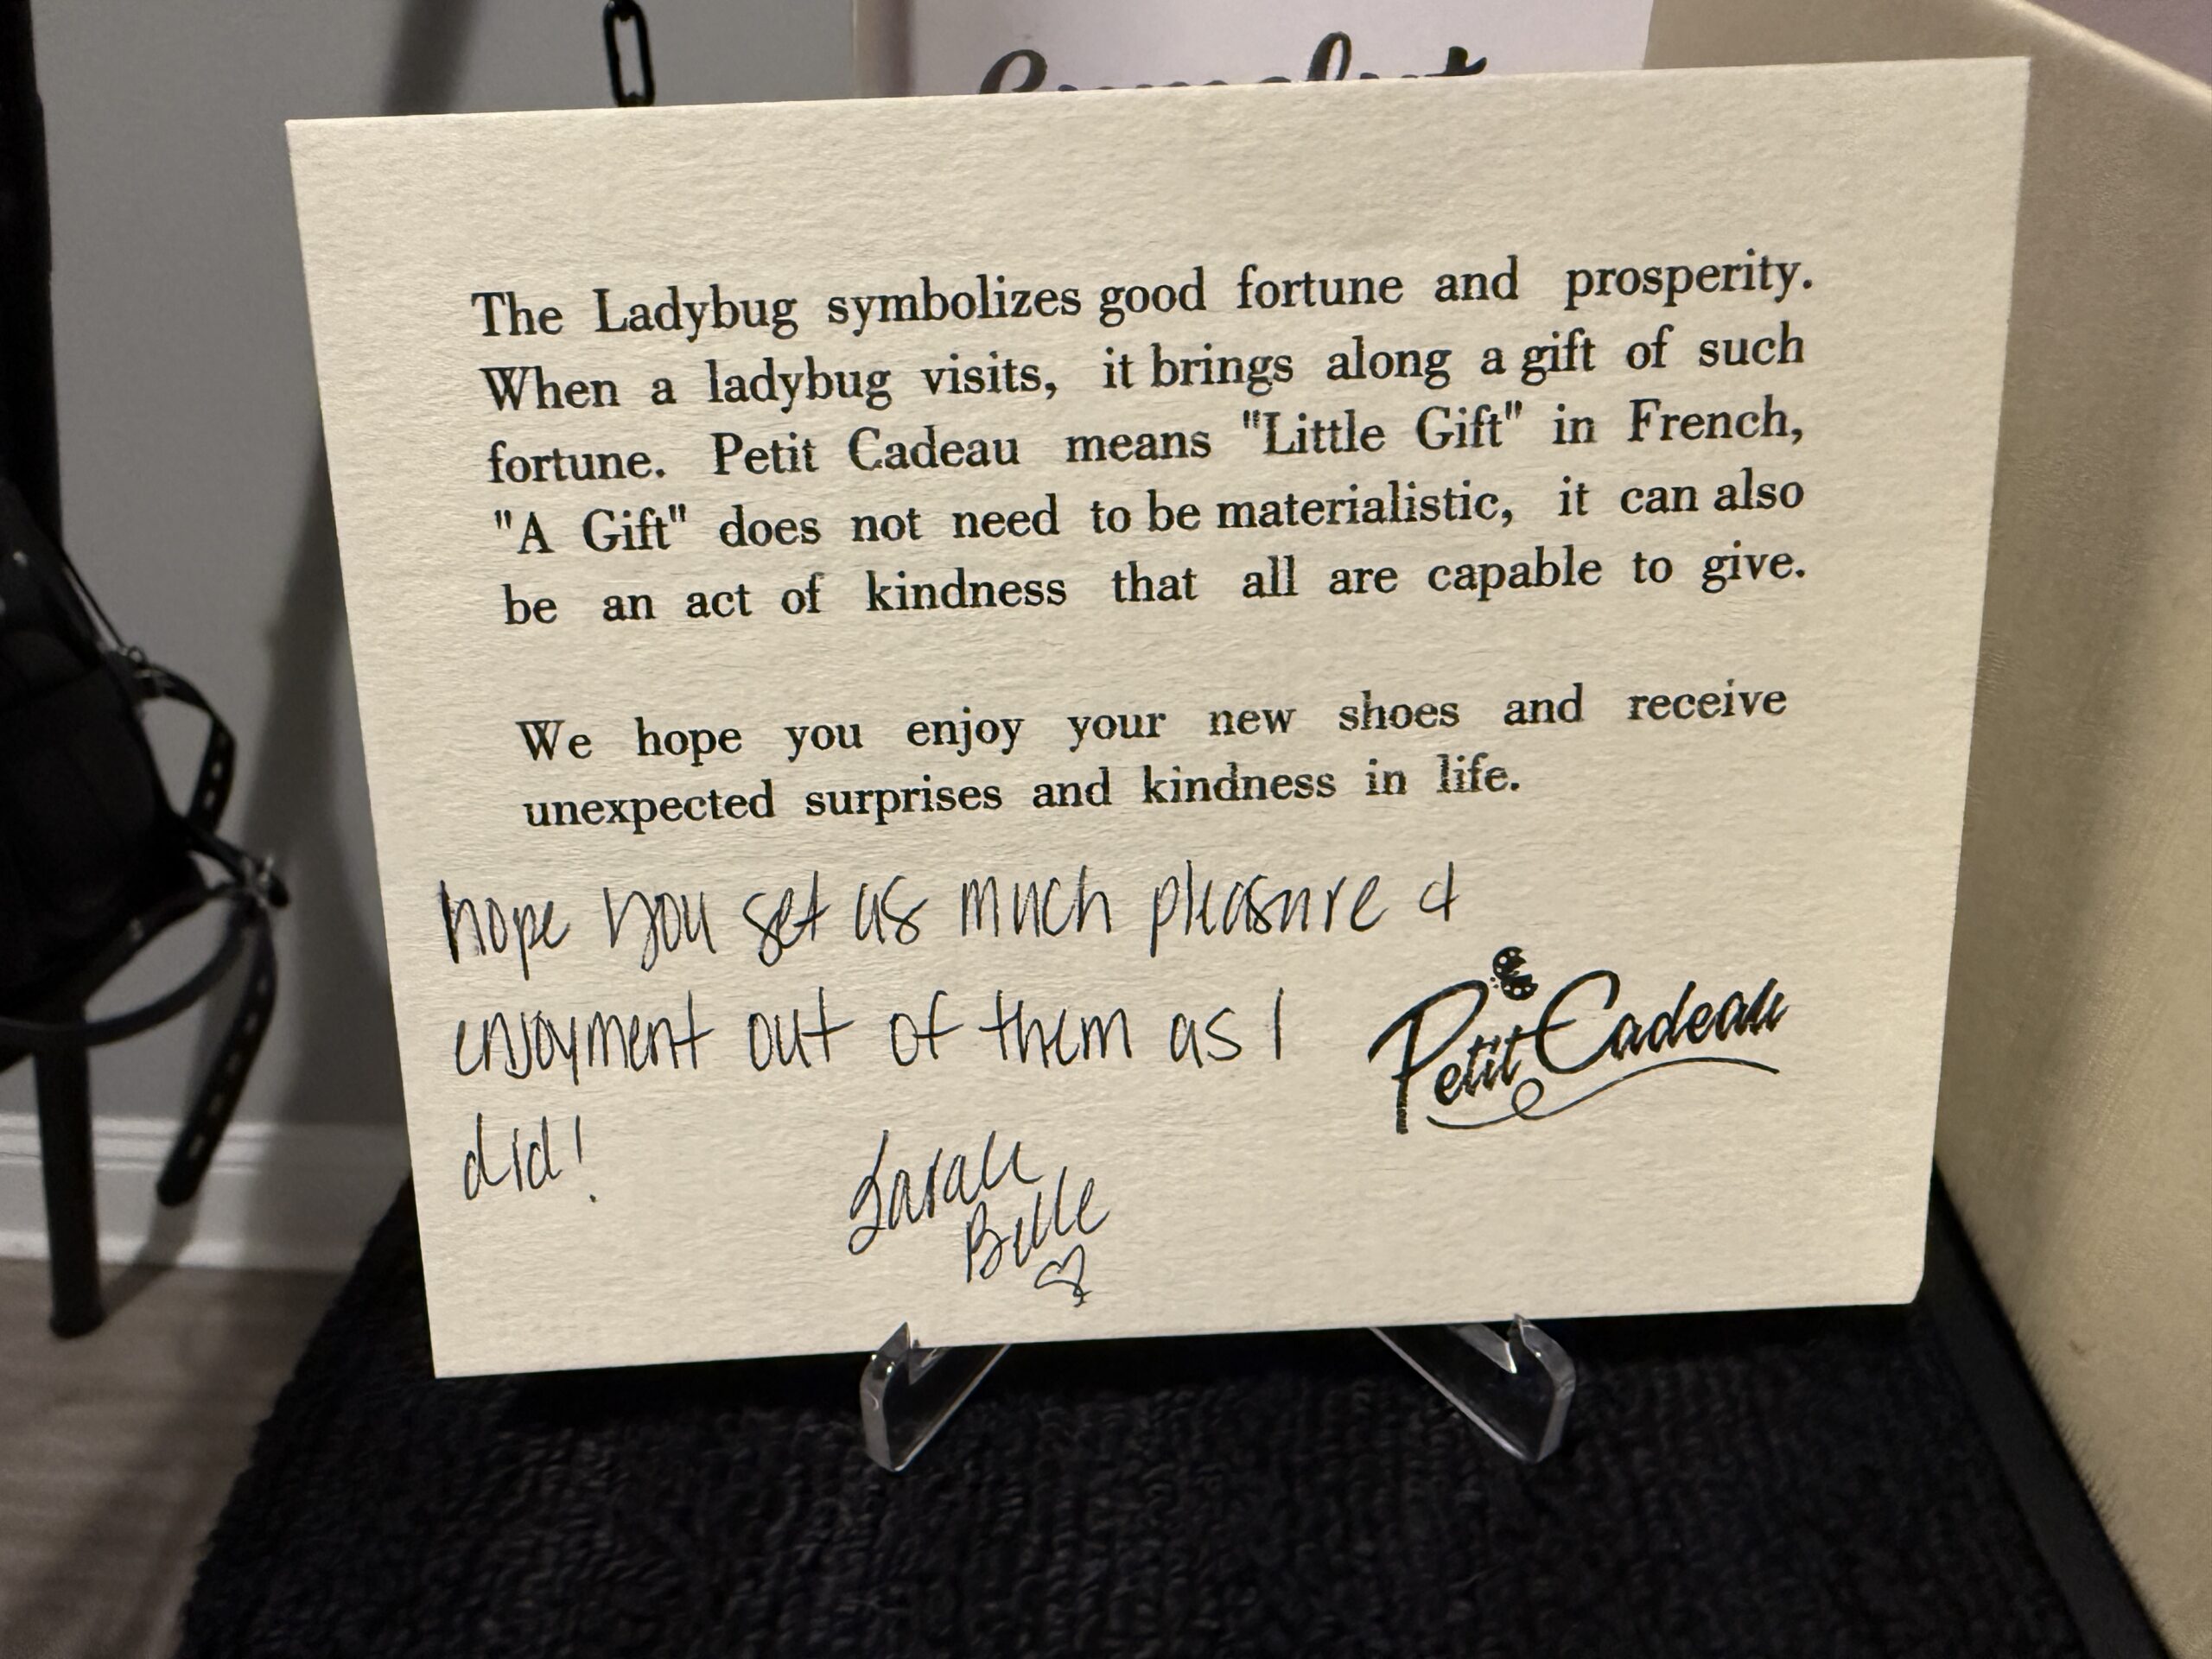 The Ladybug symbolizes good fortune and prosperity.
When a ladybug visits, it brings along a gift of such
fortune. Petit Cadeau means "Little Gift" in French,
"A Gift" does not need to be materialistic, it can also
be an act of kindness that all are capable to give.
We hope you enjoy your new shoes and receive
unexpected surprises and kindness in life.
hope you get as much pleasure &
enjoyment out of them as I
did!
Petit Cadeau
Sarah
Belle